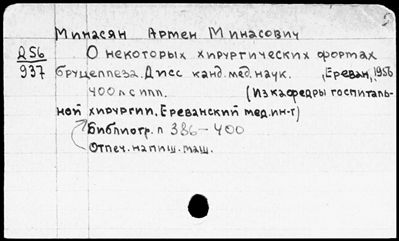 Минасян Армен Минасович
Д56 О некоторых хирургических фортах
937 бруцеллеза. Дисс канд. мед. наук. Ереван, 1956
400 л с илл. (Из кафедры госпиталь-
ной хирургии. Ереванский мед. ин-т)
Библиогр. л 386-400
Отпеч. на пиш. маш.